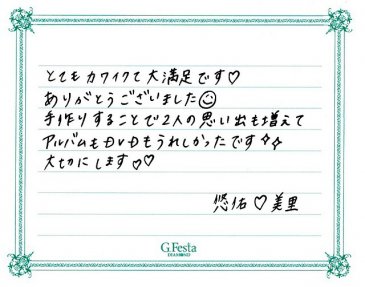 とてもカワイクて大満足です♡
ありがとうございました☺
手作りすることで2人の思い出も増えて
アルバムもDVDもうれしかったです✧✧
大切にします♡♡
悠佑♡美里
G.Festa
DIAMOND